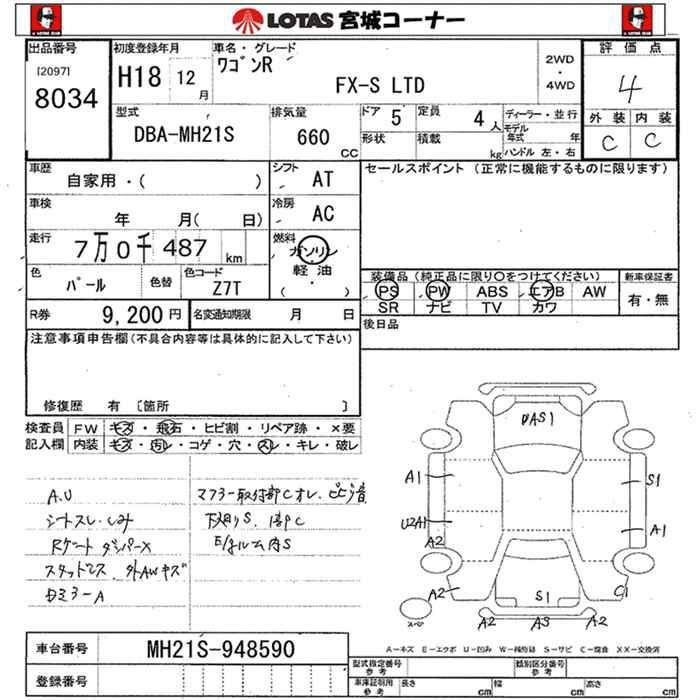 LOTAS 宮城コーナー
出品番号
[2097]
8034
初度登録年月
H18 12月
車名・グレード
ワゴンR
FX-S LTD
2WD
・
4WD
評価点
4
外装 内装
C C
型式
DBA-MH21S
排気量
660
CC
ドア 5
定員 4人
形状
積載 kg
ディーラー・並行
モデル年式 年
ハンドル 左・右
車歴
自家用・( )
シフト
AT
セールスポイント (正常に機能するものに限ります)
車検
年 月( 日)
冷房
AC
走行
7万0千487 km
燃料
ガソリン
軽・油
( ・ )
色
パール
色替
色コード
Z7T
装備品(純正品に限り○をつけてください)
PS PW ABS エアB AW
SR ナビ TV カワ
新車保証書
有・無
R券 9,200円
名変通知期限 月 日
後日品
注意事項申告欄(不具合内容等は具体的に記入して下さい)
修復歴 有 〔箇所 〕
検査員記入欄
FW キズ・飛石・ヒビ割・リペア跡・×要
内装 キズ・汚レ・コゲ・穴・スレ・キレ・破レ
A.U
シートスレ・シミ
Rゲート ダンパーX
スタッドレス 外AWキズ
ミラーA
マフラー取付部
下廻りS
E/gルーム内S
DAS1
A1
S1
U2A1
A1
A2
A2
S1
C1
A2
A3
A2
A=キズ E=エクボ U=凹み W=補修跡 S=サビ C=腐食 XX=交換済
車台番号
MH21S-948590
登録番号
型式指定番号
参考
類別区分番号
参考
車庫証明用
参考
長さ cm
幅 cm
高さ cm